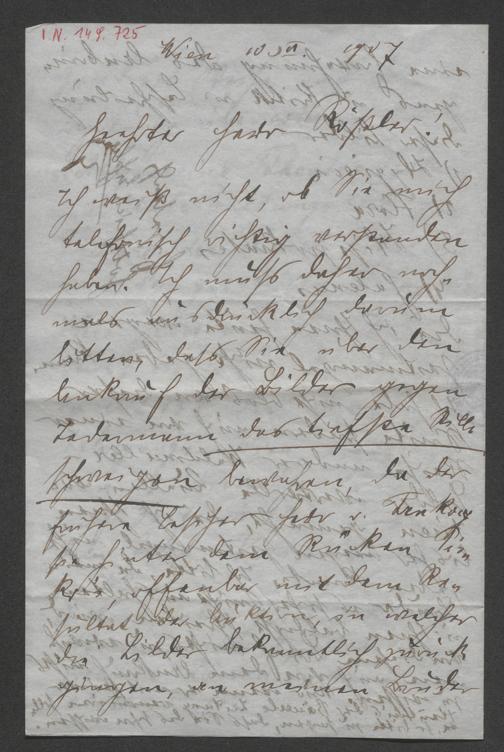 I.N. 149.725
Wien 10.VII. 1907
Geehrter Herr Rößler!
Ich weiß nicht, ob Sie mich
telefonisch richtig verstanden
haben. Ich muß daher noch
mals ausdrücklich darum
bitten, daß Sie über den
Ankauf der Bilder gegen
Jedermann das tiefste Still
schweigen bewahren, da der
frühere Besitzer Herr v.
hinter dem Rücken
offenbar mit dem Re
sultat der Auktion, in welcher
die Bilder bekanntlich zurück
gingen, an meinen Bruder